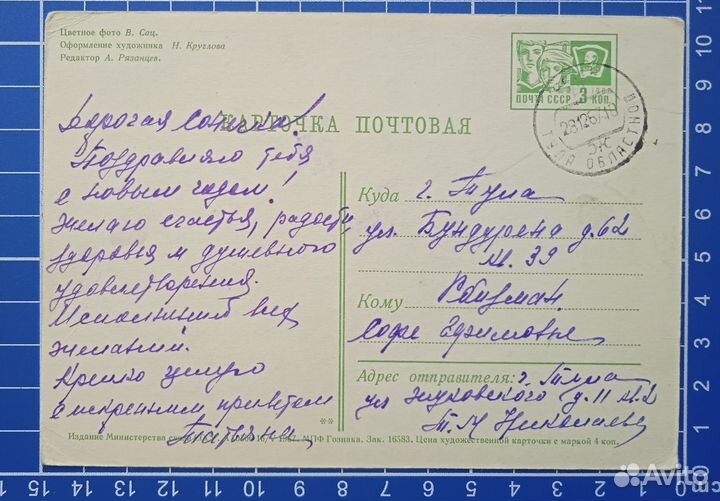 Цветное фото В. Сац.
Оформление художника Н. Круглова
Редактор А. Рязанцев.
ПОЧТА СССР 3 КОП.
ТУЛА ОБЛАСТНОЙ
КАРТОЧКА ПОЧТОВАЯ
Дорогая Сонечка!
Поздравляю тебя
с новым годом!
Желаю счастья, радости,
здоровья и душевного
удовлетворения.
Исполнения всех
желаний.
Крепко целую
с искренним приветом
Татьяна
Куда г. Тула
ул. Бундурена д. 62
кв. 39
Кому
Софье Ефимовне
Адрес отправителя: г. Тула
ул Жуковского д. 11 кв. 2
Т. М Николаева
**
Издание Министерства 1967. МПФ Гознака. Зак. 16583. Цена художественной карточки с маркой 4 коп.
Avito